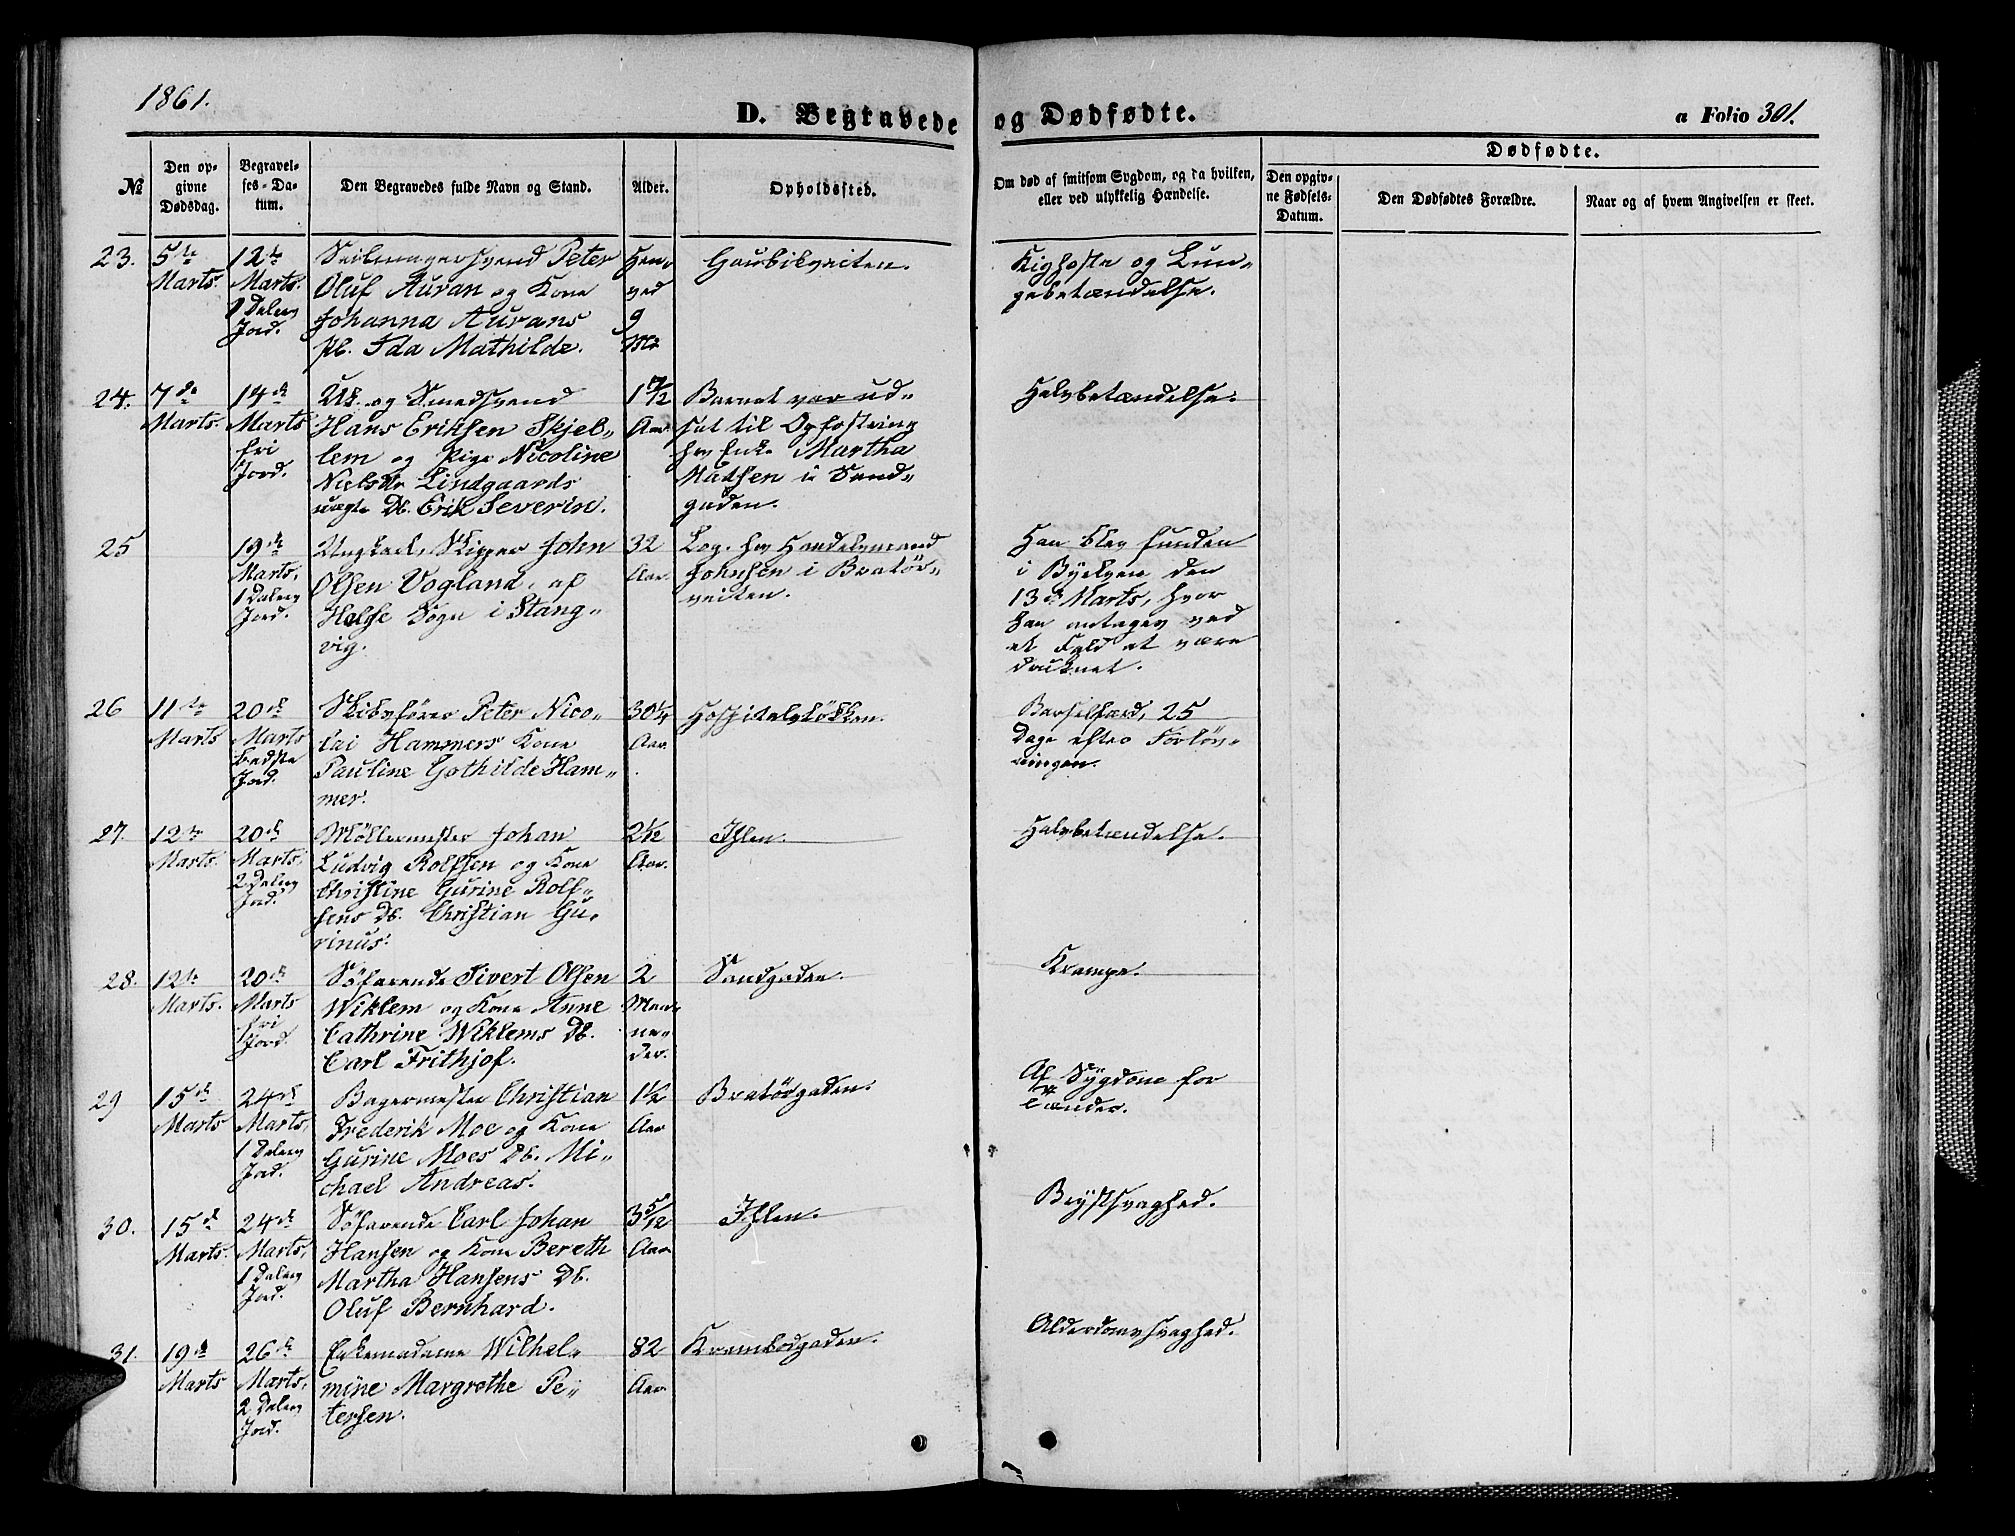 1861.
D. Begravede og Dødfødte.
a Folio 301.
№
Den opgivne Dødsdag.
Begravelses-Datum.
Den Begravedes fulde Navn og Stand.
Alder.
Opholdssted.
Om død af smitsom Sygdom, og da hvilken,
eller ved ulykkelig Hændelse.
Dødfødte.
Den opgivne Fødsels-Datum.
Den Dødfødtes Forældre.
Naar og af hvem Angivelsen er skeet.
23. 5te Marts.
12te Marts. 1 Dalers Jord.
Seilmagersvend Peter
Oluf Auran og Kone
Johanna Aurans
Pb. Ida Mathilde.
Henved 9 Mr
Gaubikveiten.
Kighoste og Lun-
gebetændelse.
24. 7de Marts.
14de Marts fri Jord.
Uk. og Smedsvend
Hans Eriksen Skjel-
lem og Pige Nicoline
Nielsdr Lindgaards
uægte Db. Erik Severin.
1 7/12 Aar.
Barnet var ud-
sat til Opfostring
hos Enke Martha
Madsen i Sand-
gaden.
Halsbetændelse.
25
19de Marts, 1 Dalers Jord.
Ungkarl, Skipper John
Olsen Vogland, af
Halse Sogn i Stang-
vig.
32 Aar.
Log. hos Handelsmand
Johnsen i Bratør-
veiten.
Han blev funden
i Byelven den
13de Marts, hvor
han antages ved
et Fald at være
druknet.
26 11te Marts
20de Marts bedste Jord.
Skibsfører Peter Nico-
lai Hammers Kone
Pauline Gothilde Ham-
mer.
30 1/4 Aar.
Hospitalsløkken.
Barselfærd, 25
Dage efter Forløs-
ningen.
27. 12te Marts.
20de Marts, 2 Dalers Jord.
Møllermester Johan
Ludvig Rolfsen og Kone
Christine Gurine Rolf-
sens Db. Christian Gu-
rinus.
2 1/2 Aar.
Ihlen.
Halsbetændelse.
28. 12te Marts.
20de Marts fri Jord.
Søfarende Sivert Olsen
Wiklem og Kone Anne
Cathrine Wiklems Db.
Carl Frithjof.
2 Maa-
ne-
der.
Sandgaden.
Krampe.
29 15de Marts
24de Marts, 1 Dalers Jord.
Bagermester Christian
Frederik Moe og Kone
Gurine Moes Db. Mi-
chael Andreas.
1 1/2 Aar
Bratørgaden.
Af Sygdom for
Tænder.
30. 15de Marts.
24de Marts, 1 Dalers Jord.
Søfarende Carl Johan
Hansen og Kone Bereth
Martha Hansens Db.
Oluf Bernhard.
3 5/12 Aar
Ihlen.
Brystsvaghed.
31. 19de Marts
26de Marts, 2 Dalers Jord.
Enkemadame Wilhel-
mine Margrethe Pe-
tersen.
82 Aar.
Krambodgaden.
Alderdomssvaghed.